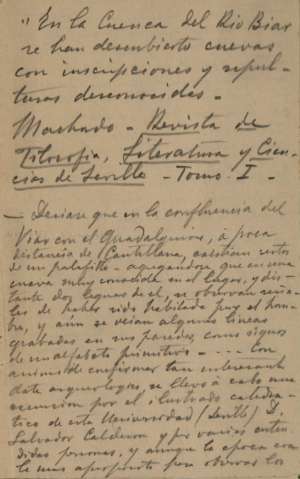 "En la Cuenca del Rio Biar
se han descubierto cuevas
con inscripciones y sepul-
turas desconocidas.
Machado - Revista de
Filosofia, Literatura y Cien-
cias de Sevilla - Tomo I -
- Decian que en la confluencia del
Viar con el Guadalquivir, á poca
distancia de Cantillana, existian restos
de un palafito - agregandose que en una
cueva muy conocida en el lugar, y dis-
tante dos leguas de el, se observan seña-
les de haber sido habitada por el hom-
bre, y aun se veian algunas lineas
grabadas en sus paredes, como signos
de un alfabeto primitivo - . . . Con
animo de confirmar tan interesante
dato arqueologico, se llevó á cabo una
escursion por el ilustrado catedra-
tico de esta Universidad (Sevilla) D.
Salvador Calderon y por varias enten-
didas personas, y aunque la epoca era
la mas aproposito para observar los